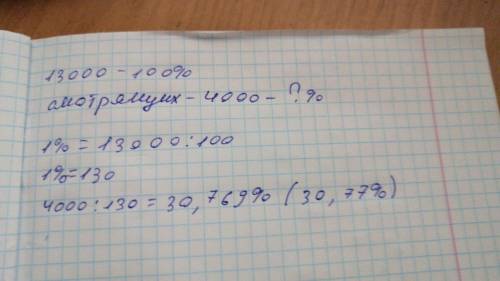 13000 - 100%
смотрящих - 4000 - ?%
1% = 13000:100
1%=130
4000:130 = 30,769% (30,77%)